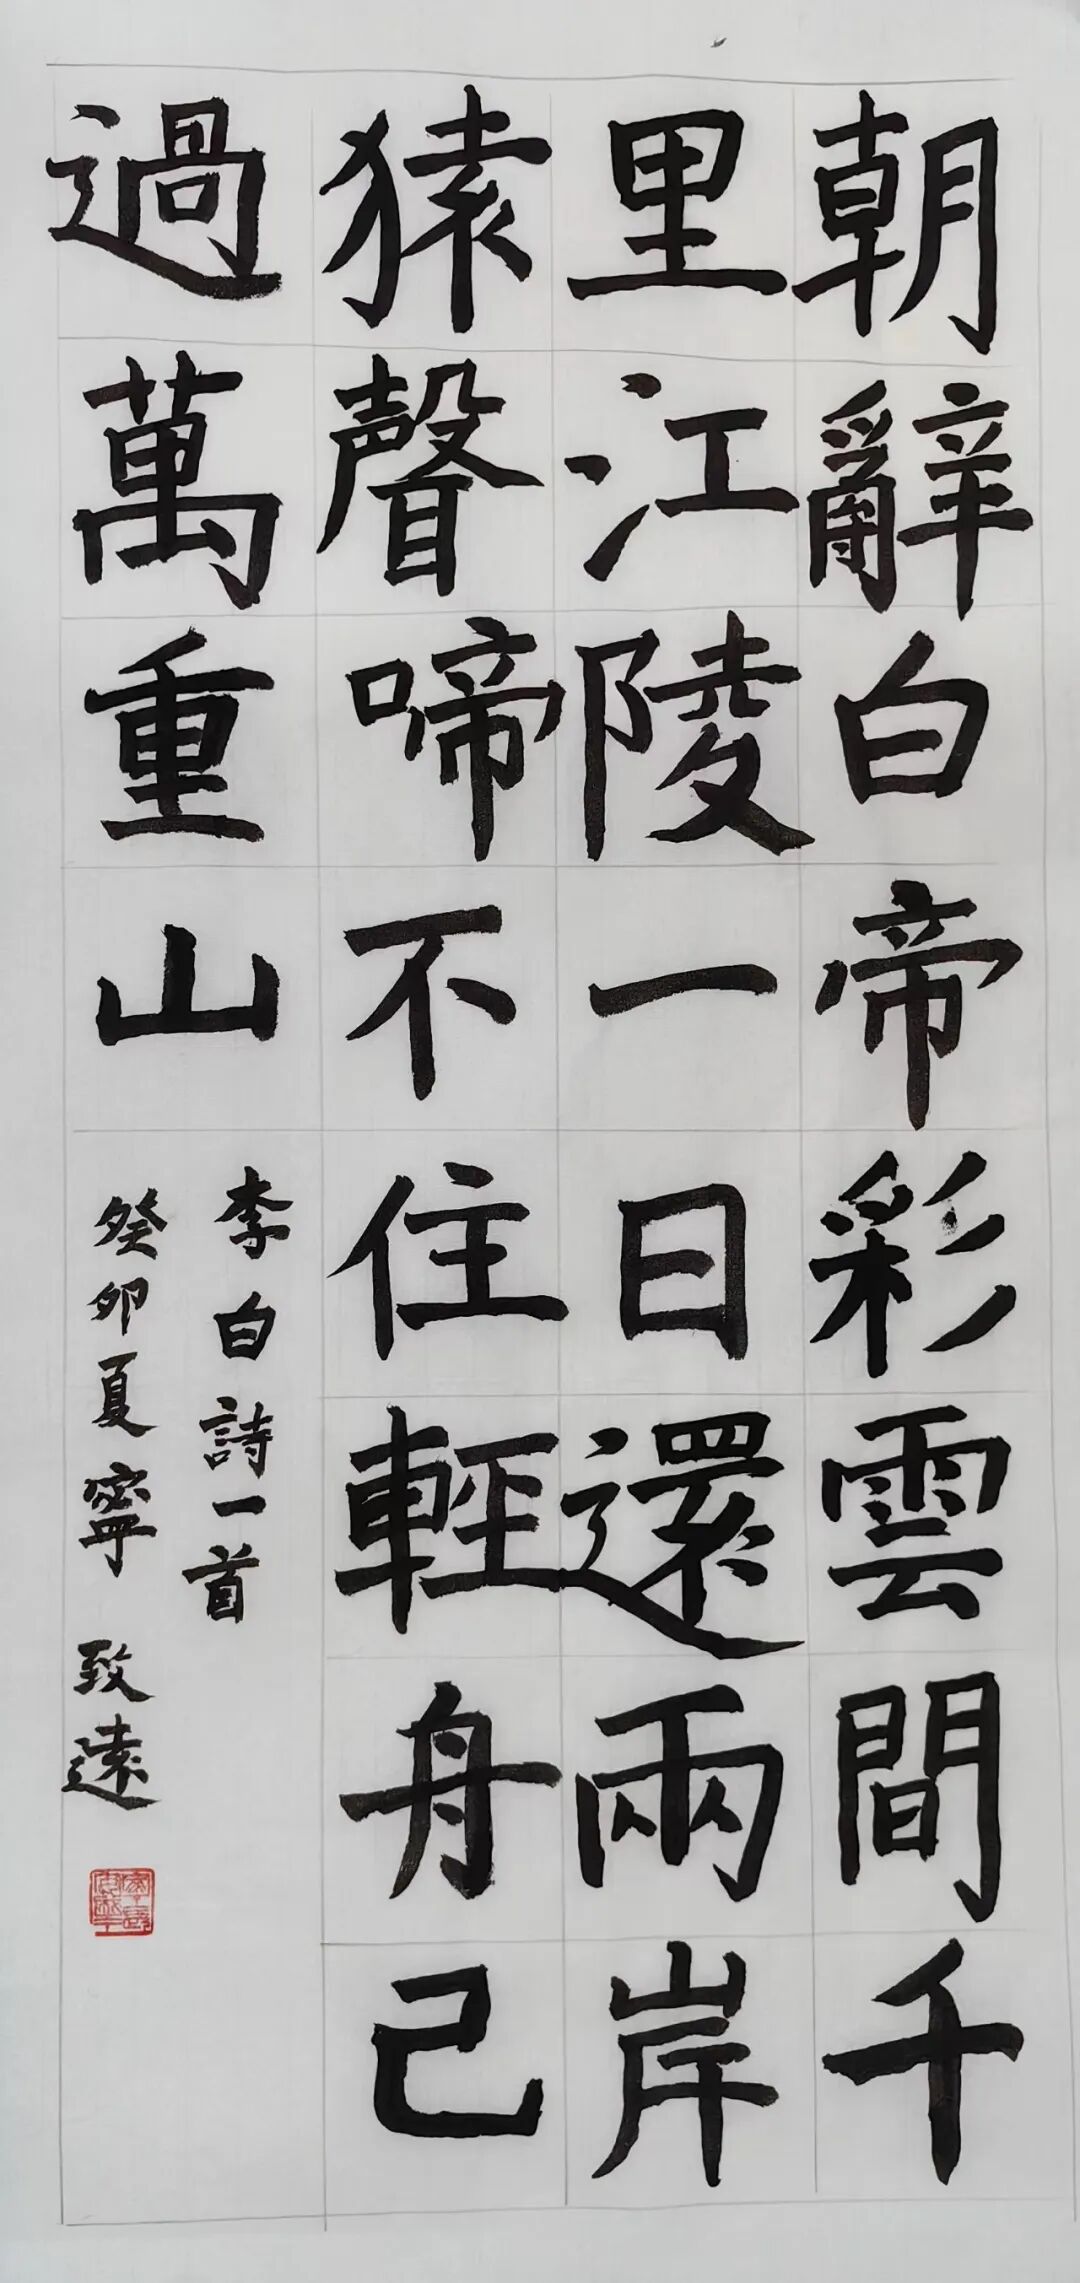 朝辭白帝彩雲間千
里江陵一日還兩岸
猿聲啼不住輕舟已
過萬重山
李白詩一首
癸卯夏寧致遠